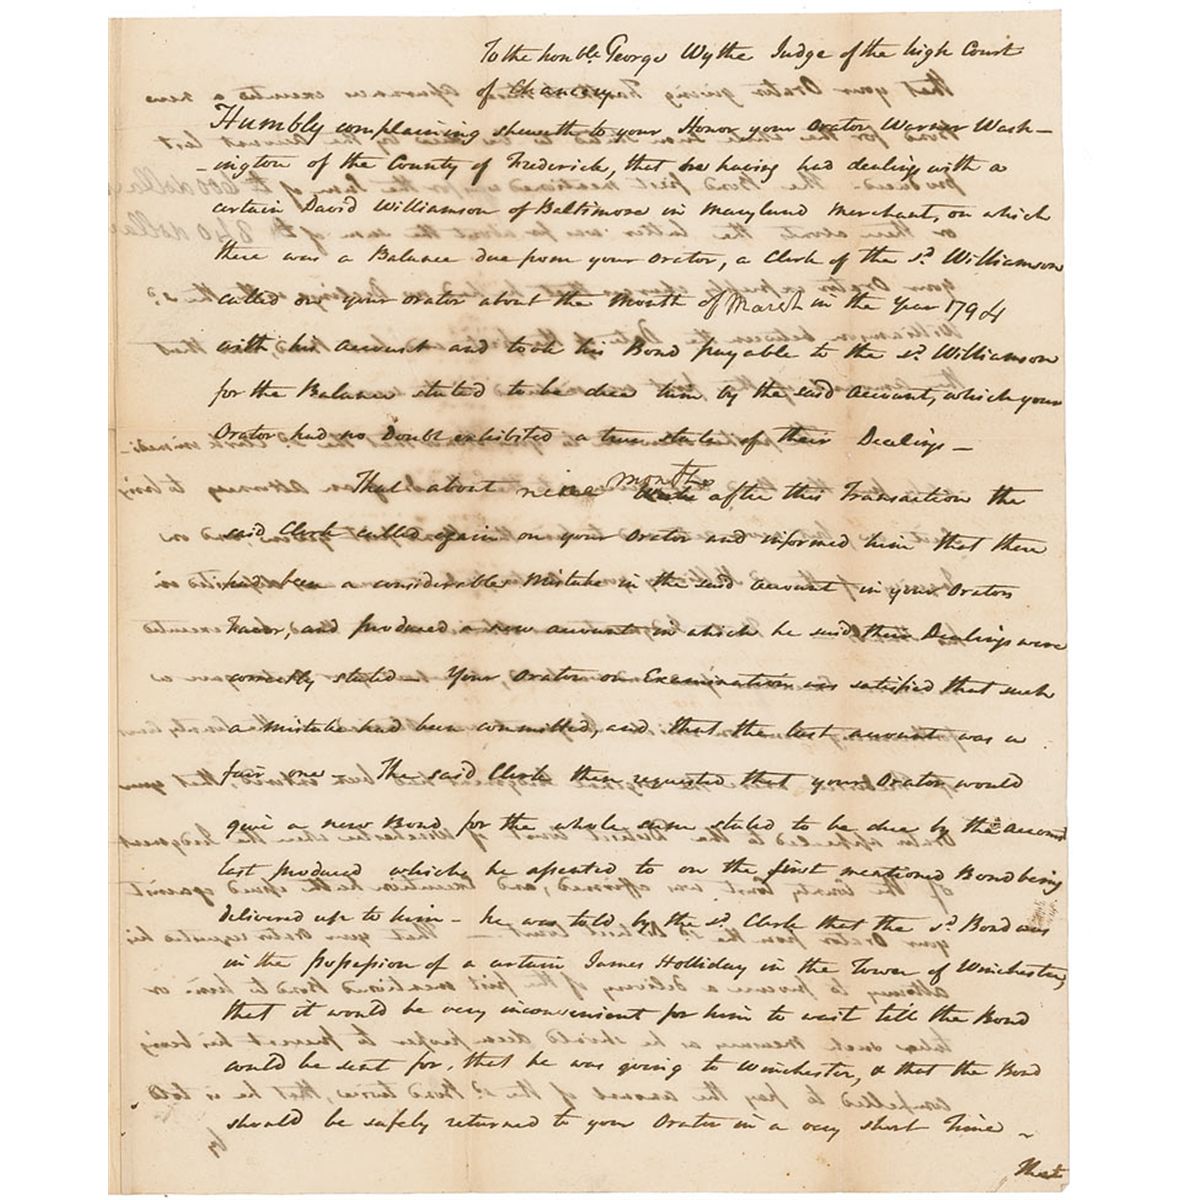 To the honble. George Wythe Judge of the high Court
of Chancery
Humbly complaining sheweth to your Honor your Orator Warner Wash-
-ington of the County of Frederick, that he having had dealings with a
certain David Williamson of Baltimore in Maryland Merchant, on which
there was a Balance due from your Orator, a Clerk of the sd. Williamson
called on your Orator about the Month of March in the year 1794
with his Account and took his Bond payable to the sd. Williamson
for the Balance stated to be due him by the said Account, which your
Orator had no Doubt exhibited a true state of their Dealings -
That about nine months after this Transaction the
said Clerk called again on your Orator and informed him that there
had been a considerable Mistake in the said Account in your Orators
Favor, and produced a new account in which he said their Dealings were
correctly stated - Your Orator on Examination was satisfied that such
a Mistake had been committed, and that the last account was a
fair one - The said Clerk then requested that your Orator would
give a new Bond for the whole sum stated to be due by the Account
last produced which he assented to on the first mentioned Bond being
delivered up to him - he was told by the sd. Clerk that the sd. Bond was
in the possession of a certain James Holliday in the Town of Winchester,
that it would be very inconvenient for him to wait till the Bond
could be sent for, that he was going to Winchester, & that the Bond
should be safely returned to your Orator in a very short Time -
That